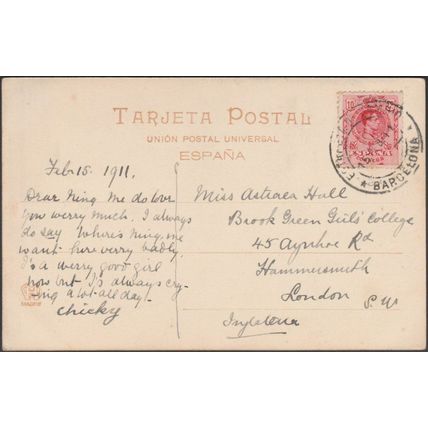 TARJETA POSTAL
UNIÓN POSTAL UNIVERSAL
ESPAÑA
Feb 15. 1911.
Dear Ning. Me do love
you werry much. I always
do say Where's ning, me
want here verry badly.
I's a werry good girl
now but I's always cry-
ing a lot all day.
Chicky
Miss Astraea Hall
Brook Green Girls' College
45 Aynhoe Rd
Hammersmith
London S.W.
Inglaterra
10
BARCELONA
MADRID